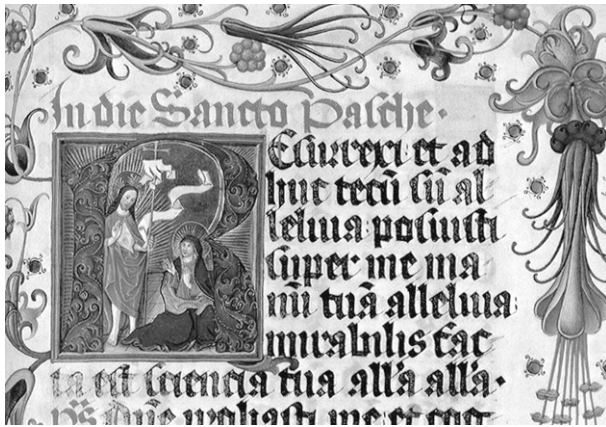 In die Sancto Pasche.
REsurrexi et ad
huc tecū sū al
leluia posuisti
super me ma
nū tuā alleluia
mirabilis fac
ta est sciencia tua all'a all'a.
p̄s Dn̄e probasti me et cog